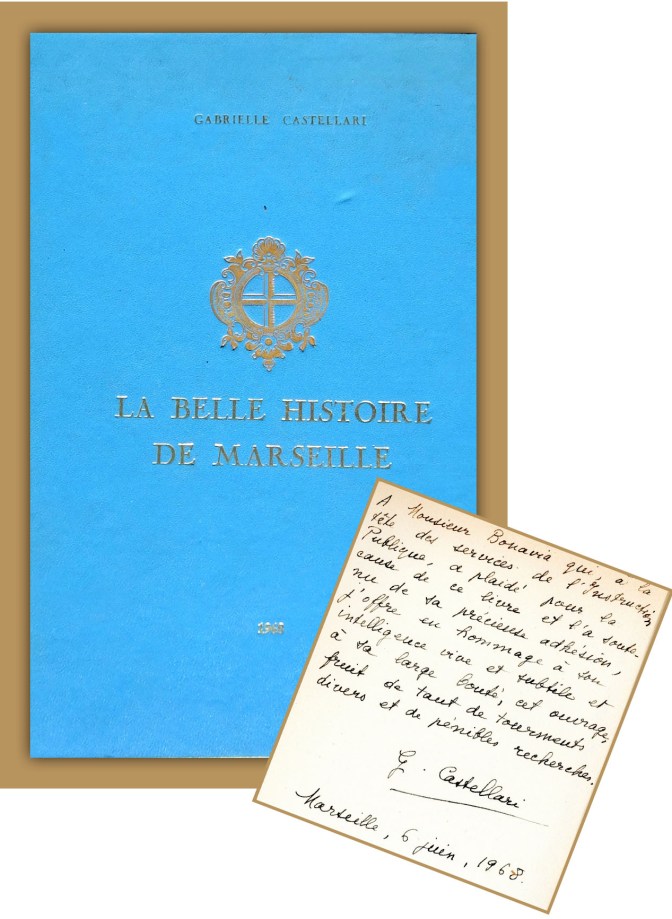 GABRIELLE CASTELLARI
LA BELLE HISTOIRE
DE MARSEILLE
1968
A Monsieur Bonavia qui, à la
tête des services de l'Instruction
Publique, a plaidé pour la
cause de ce livre et l'a soute-
nu de sa précieuse adhésion,
j'offre en hommage à son
intelligence vive et subtile et
à sa large bonté, cet ouvrage,
fruit de tant de tourments
divers et de pénibles recherches.
G. Castellari
Marseille, 6 juin, 1968.